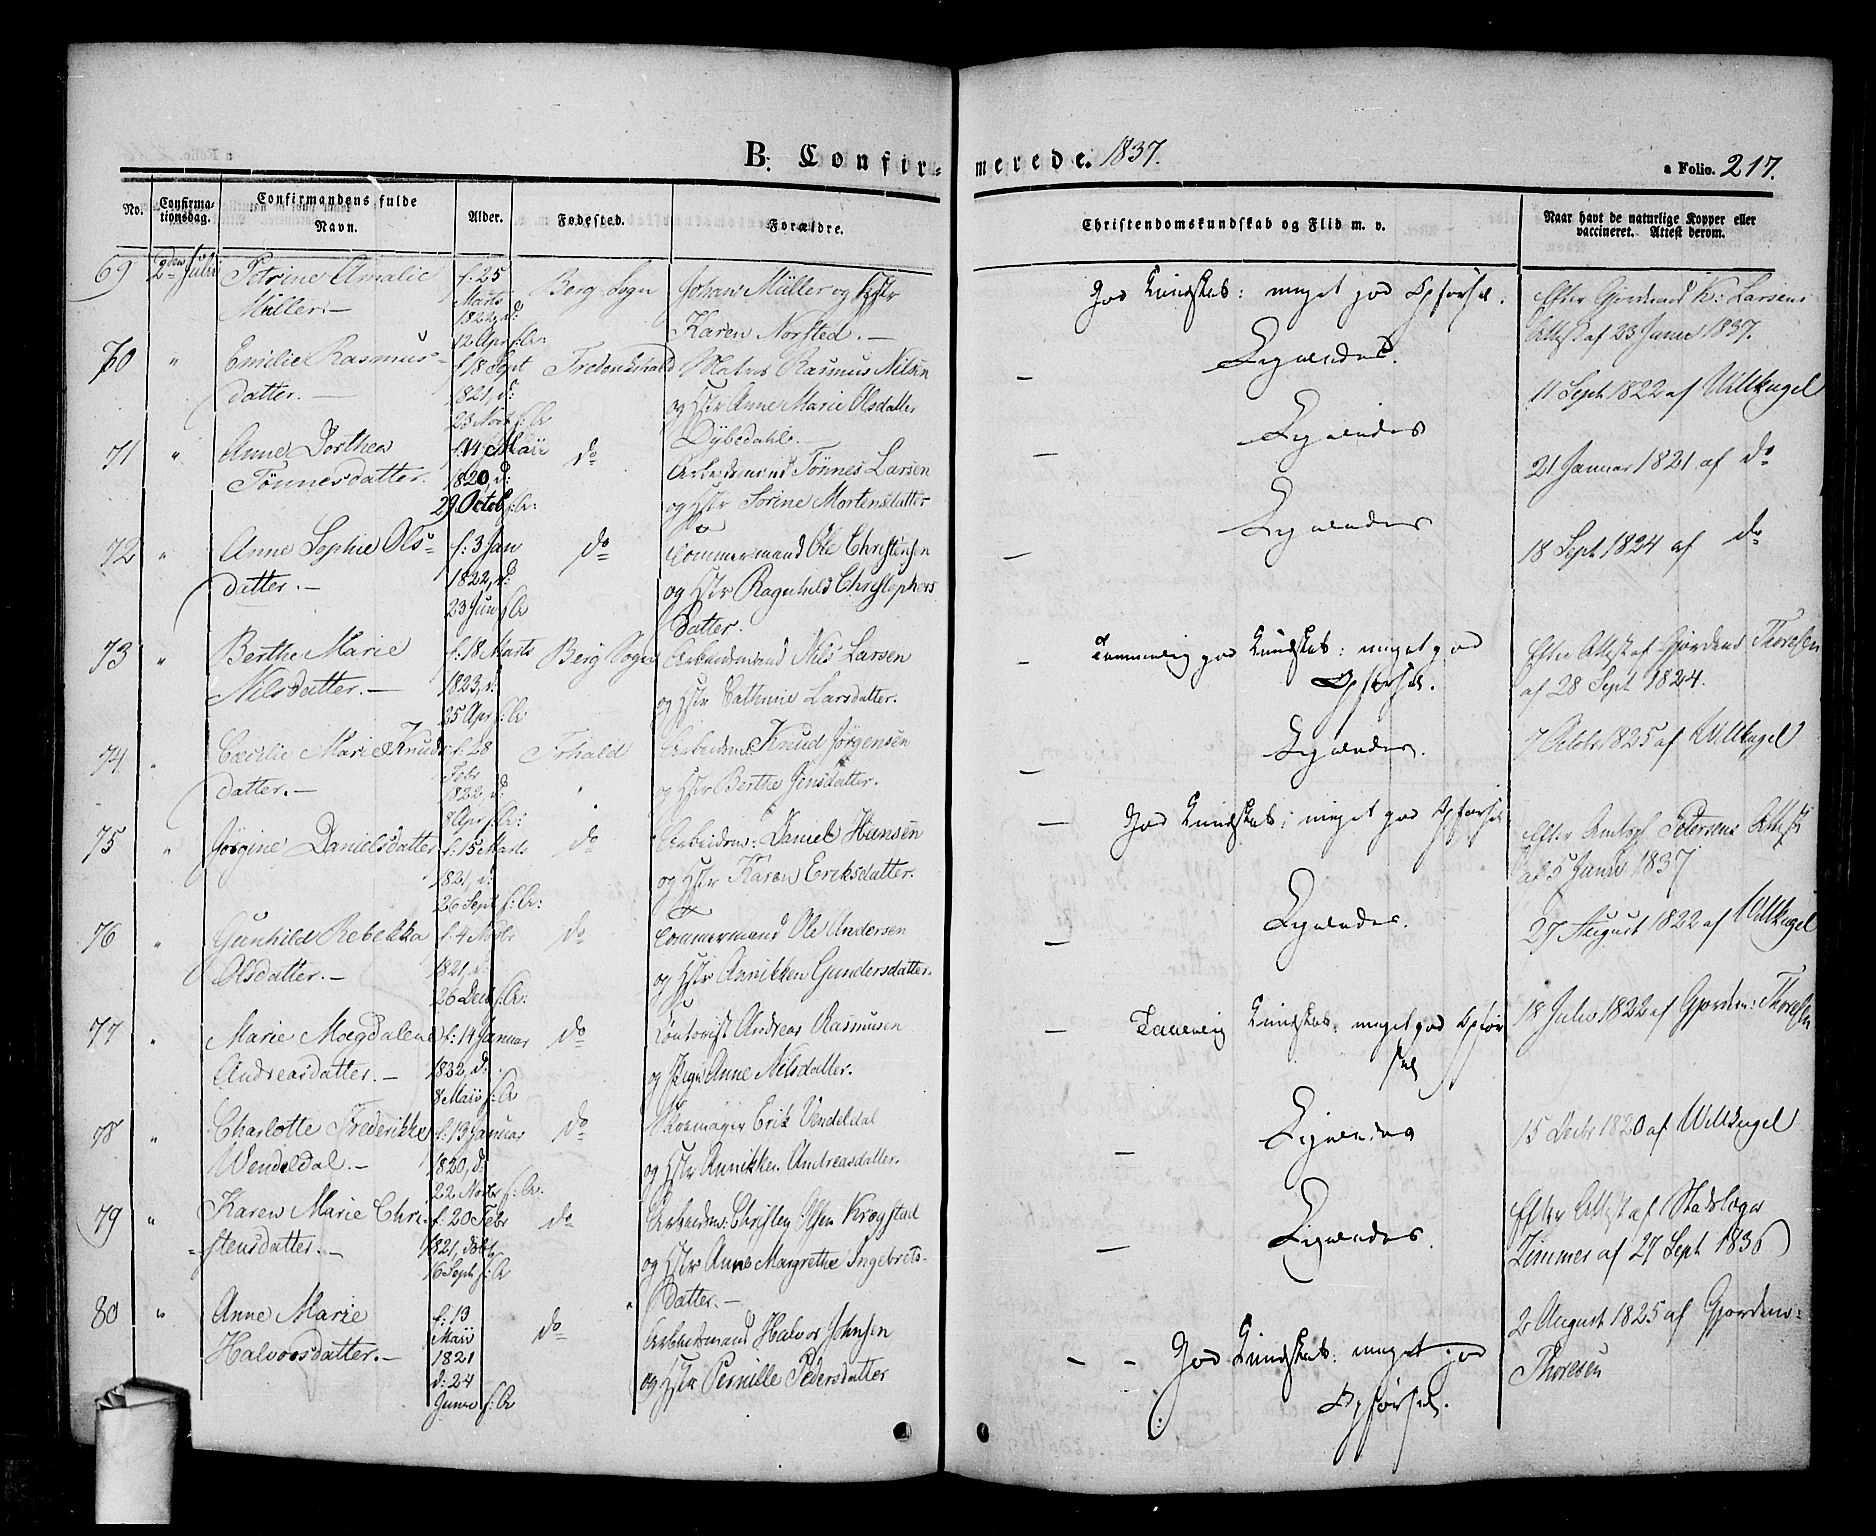 B. Confir- merede. 1837.
a Folio. 217.
No. Confirma-tionsdag. Confirmandens fulde Navn. Alder. Fødested. Forældre. Christendomskundskab og Flid m. v. Naar havt de naturlige Kopper eller vaccineret. Attest derom.
69 2den Juli Petrine Amalie f. 25 Berg Sogn Johan Müller og Hstr God Kundskab: meget god Opførsel. Efter Gjordemd K: Larsens
Müller.— Marts 1822, d: 12 Apr. f: A: Karen Norsted.— Attest af 23 Junii 1837.
70 " Emilie Rasmus- f. 18 Sept Frederikshald Matros Rasmus Nilsen — Ligeledes.
datter.— 1821, d: 23 Novb f: A og Hstr Anne Marie Olsdatter 11 Sept 1822 af Willkugel
Dybedahl.
71 " Anne Dorthea f. 14 Maii do Arbeidsmand Tønnes Larsen — Ligeledes
Tønnesdatter. 1820, d: 29 Octob f: A: og Hstr Sørine Mortensdatter 21 Januar 1821 af do
72 " Anne Sophie Ols- f: 3 Jan do Tømmermand Ole Christensen — Ligeledes 18 Sept 1824 af do
datter.— 1822, d: 23 Juni f: A og Hstr Ragnhild Christophers
datter.
73 " Berthe Marie f. 18 Marts Berg Sogn Arbeidsmand Nils Larsen — Temmelig god Kundskab: meget god Efter Attest af Gjordemd Thoresen
Nilsdatter.— 1823, d. 25 Apr f: A og Hstr Cathrine Larsdatter. Opførsel. af 28 Sept 1824.
74 " Cecilie Marie Knuds f. 28 Frhald Arbeidsm: Knud Jørgensen — Ligeledes. 7 Octobr 1825 af Willkugel
datter.— Febr 1822, d: 8 Apr f: A: og Hstr Berthe Jensdatter.
75 " Jørgine Danielsdatter f: 15 Marts do Arbeidsm: Daniel Hansen — God Kundskab; meget god Opførsel Efter Petersens Attest
1821, d: 26 Sept f: A: og Hstr Karen Eriksdatter. af 5 Junii 1837
76 " Gunhild Rebekka f. 4 Novbr do Tømmermand Ole Andersen — Ligeledes. 27 August 1822 af Willkugel
Olsdatter.— 1821, d: 26 Decb f: A: og Hstr Annikken Gundersdatter.
77 " Marie Magdalene f: 14 Januar do Contorist Andreas Rasmusen — Temmelig Kundskab: meget god Opfør 18 Julii 1822 af Gjordem: Thoresen
Andreasdatter.— 1822, d: 8 Maii f: A og Pige Anne Nilsdatter. sel
78 " Charlotte Frederikke f. 13 Januar do Skomager Erik Vendeldal — Ligeledes 15 Decbr 1820 af Willkugel
Wendeldal.— 1820, d: 22 Novbr f: A. og Hstr Annikken Andreasdatter.
79 " Karen Marie Chri- f. 20 Febr do Arbeidsm: Christen Olsen Krogstad — Ligeledes. Efter Attest af Stadslæge
stensdatter.— 1821, døbt 16 Sept f: A og Hstr Anne Margrethe Ingebrets- Zimmer af 27 Sept 1836
datter.—
80 " Anne Marie f: 13 do Arbeidsmand Halvor Johnsen — — God Kundskab: meget god 2 August 1825 af Gjordem-
Halvorsdatter.— Maii 1821 d: 24 Junii f: A og Hstr Pernille Pedersdatter Opførsel. Thoresen